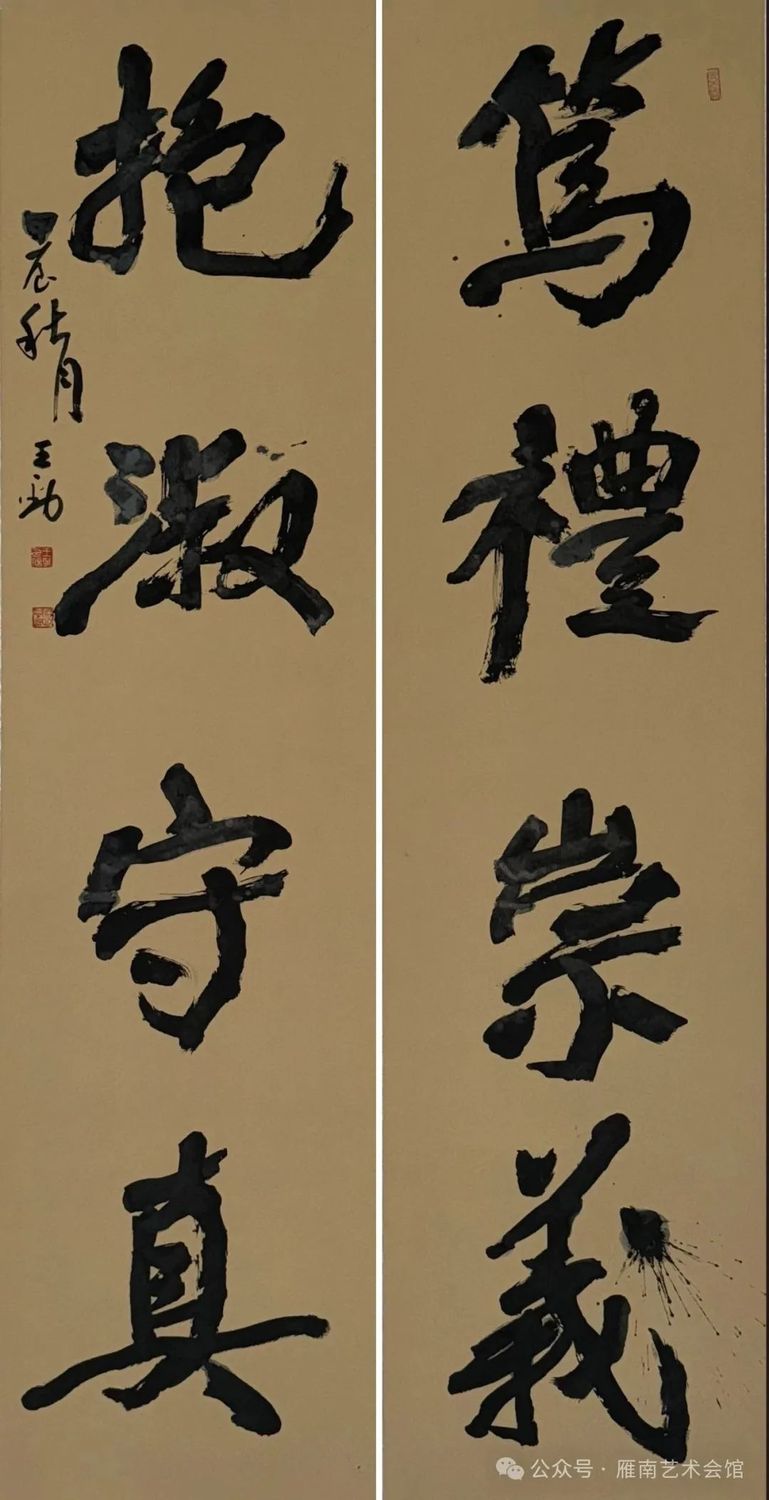 篤禮崇義
抱淑守真
甲辰秋月
王勁
公众号·雁南艺术会馆